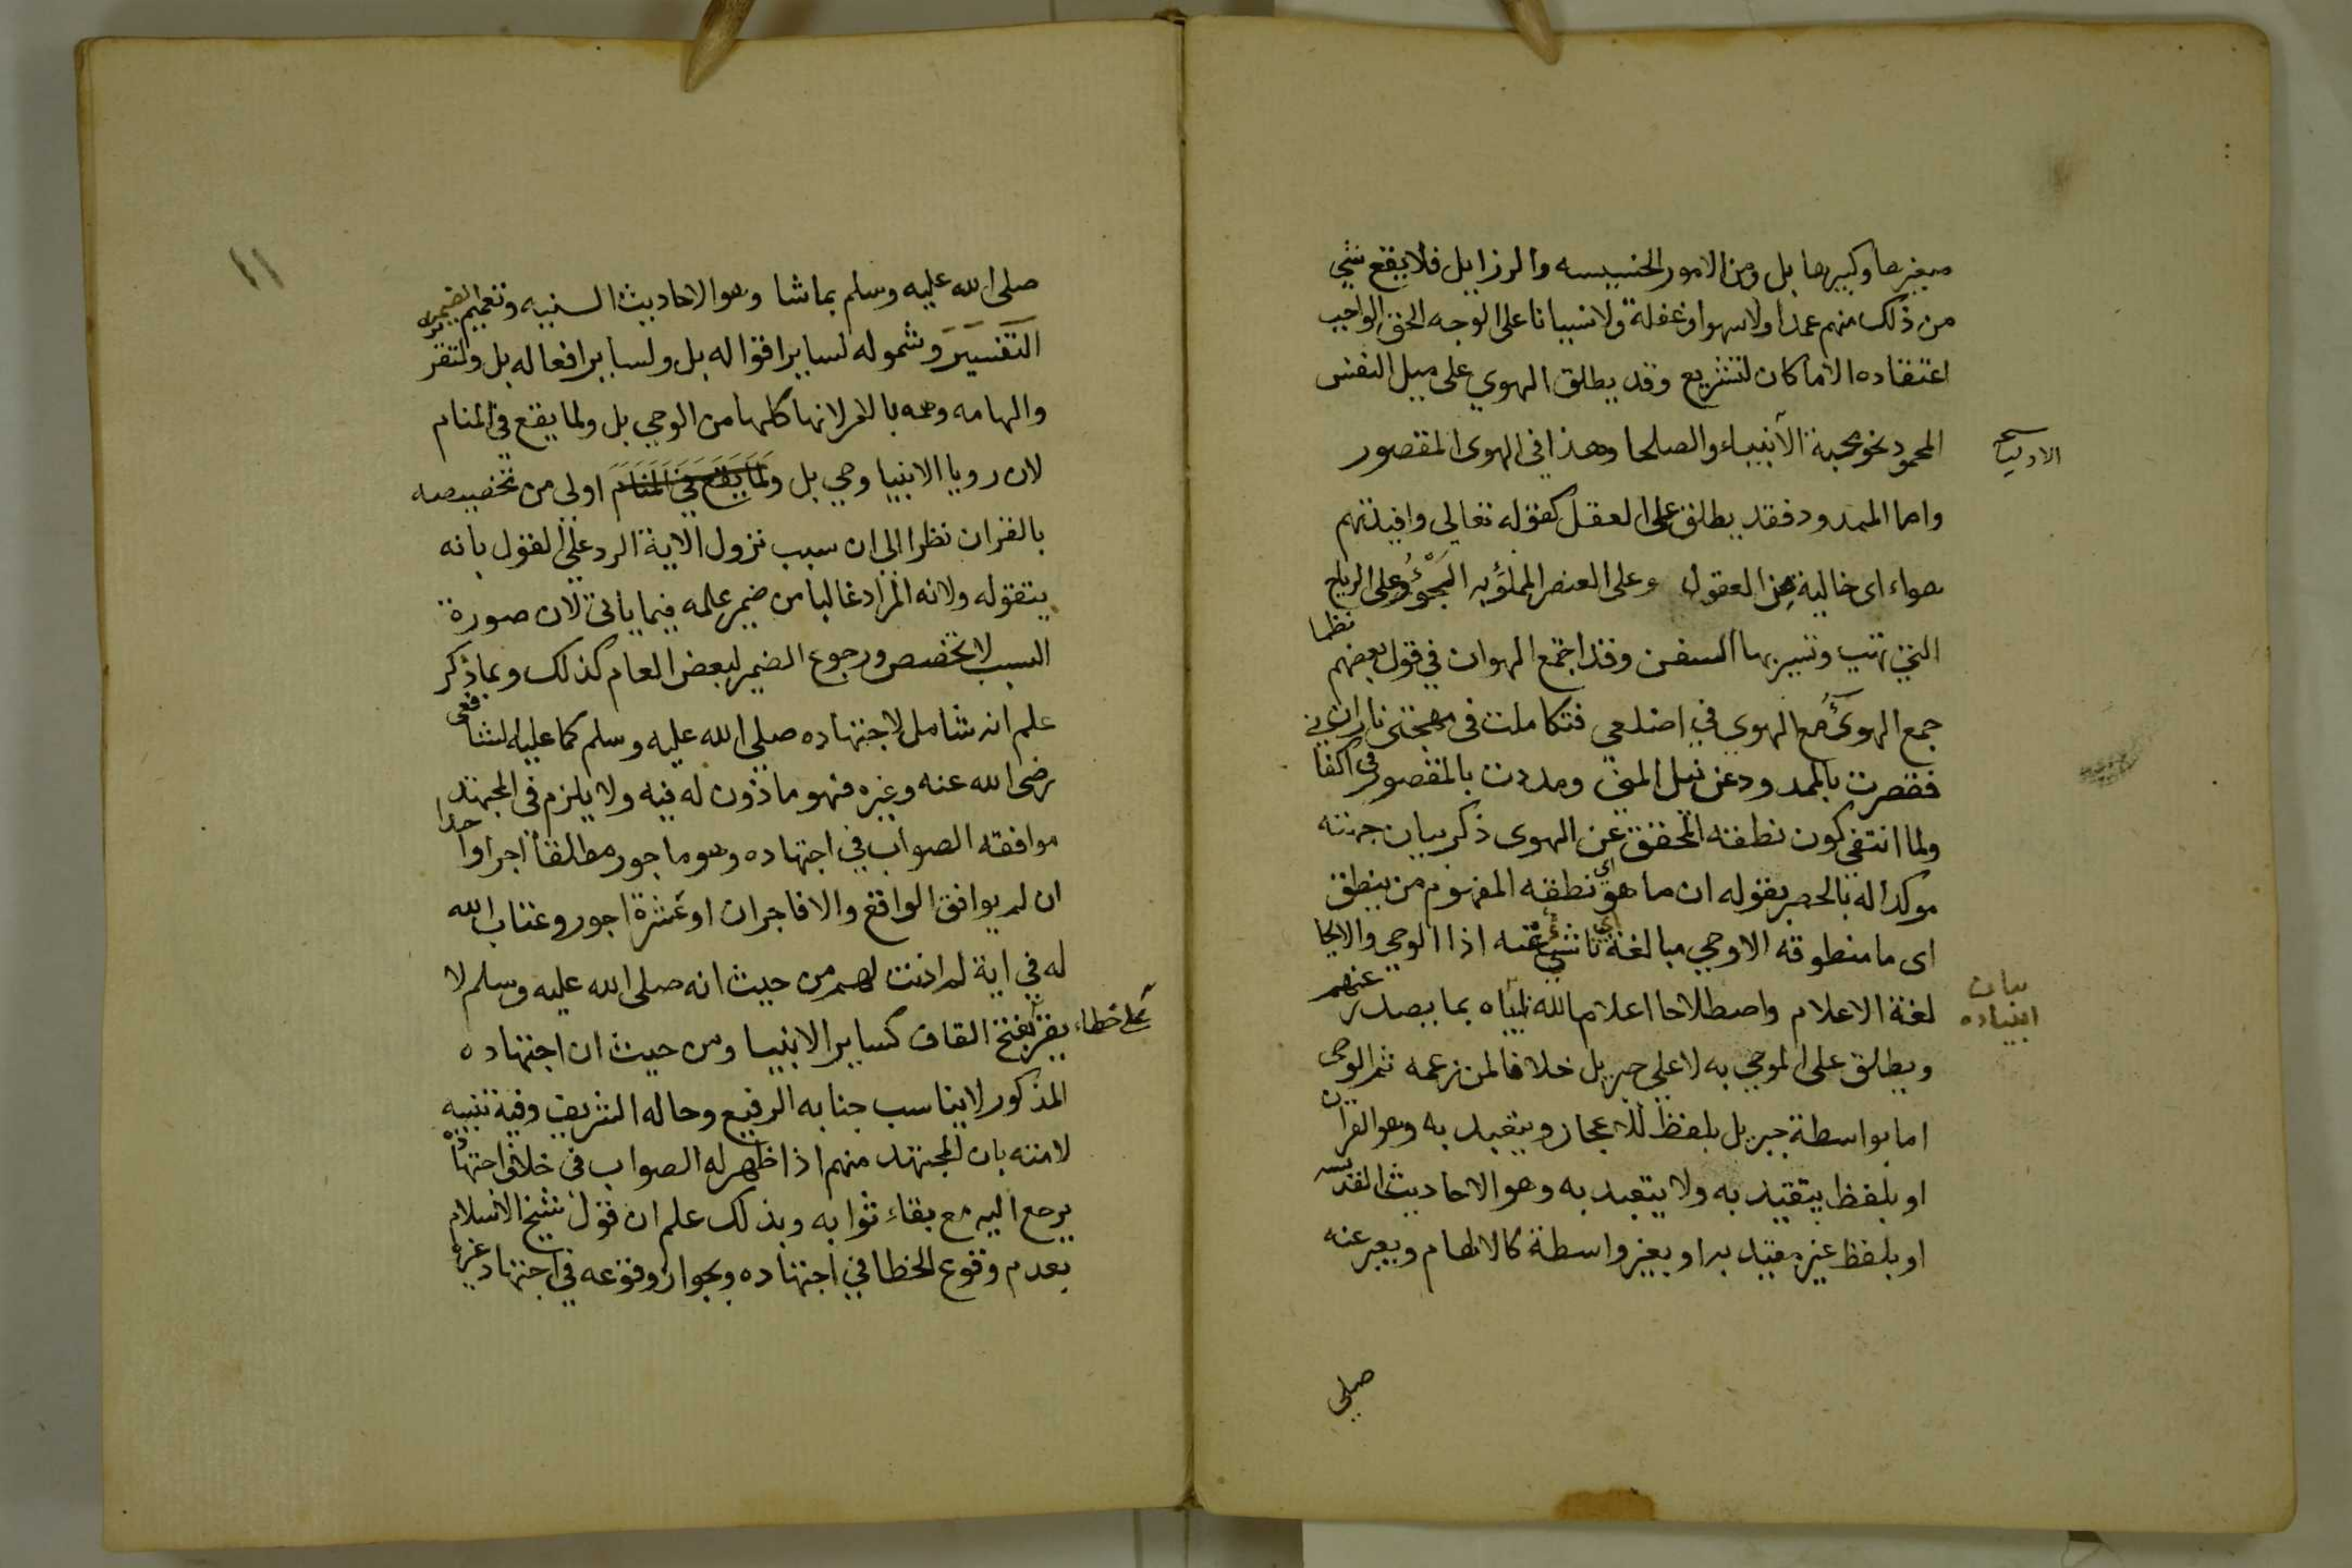 صغيرها وكبيرها بل ومن الامور الخسيسه والرزايل فلا يقع شي
من ذلك منهم عمدا ولا سهوا وغفلة ولا نسيانا على الوجه الحق الواجب
اعتقاده الا ما كان لتشريع وقد يطلق الهوي على ميل النفس
المحمود نحو محبة الانبياء والصلحا وهذا في الهوى المقصور
واما الممدود فقد يطلق على العقل كقوله تعالي وافيدتهم
هواء اى خالية عن العقول وعلى العنصر المملؤ به الجو وعلى الرياح
التي تهب وتسير بها السفن وقد اجتمع الهوان في قول بعضهم نظما
جمع الهوى مع الهوي في اضلعي فتكاملت فى مهجتى ناران
فقصرت بالممدود عن نيل المنى ومددت بالمقصور في اكفا ني
ولما انتفى كون نطقه المحقق عن الهوى ذكر بيان جهته
موكدا له بالحصر بقوله ان ما هو اي نطقه المفهوم من ينطق
اى ما منطوقه الا وحي مبالغة اي ناشي عنه اذا الوحي والايحا
لغة الاعلام واصطلاحا اعلام الله نبياه بما يصدر عنهم
ويطلق على الموحي به لا علي جبريل خلافا لمن زعمه ثم الوحى
اما بواسطة جبريل بلفظ للاعجاز ويتعبد به وهو القران
او بلفظ يتقيد به ولا يتعبد به وهو الاحاديث القدسيه
او بلفظ غير مقيد به او بغير واسطة كالالهام ويعبر عنه
بيان
صلى
١١
صلى الله عليه وسلم بما شا وهو الاحاديث السنيه وتعميم الضمير
التفسير وشموله لساير اقواله بل ولساير افعاله بل ولتقريره
والهامه وهمه بالامر لانها كلها من الوحي بل ولما يقع في المنام
لان رويا الانبيا وحي بل ولما يقع في المنام اولى من تخصيصه
بالقران نظرا الى ان سبب نزول الاية الرد على القول بانه
يتقوله ولانه المراد غالبا من ضمير علمه فيما ياتي لان صورة
السبب لا تخصص ورجوع الضمير لبعض العام كذلك وبما ذكر
علم انه شامل لاجتهاده صلى الله عليه وسلم كما عليه الشافعى
رضى الله عنه وغيره فهو ماذون له فيه ولا يلزم فى المجتهد
موافقة الصواب في اجتهاده وهو ماجور مطلقا اجرا واحدا
ان لم يوافق الواقع والا فاجران او عشرة اجور وعتاب الله
له في اية لم اذنت لهم من حيث انه صلى الله عليه وسلم لا
يقر بفتح القاف على خطاء كساير الانبيا ومن حيث ان اجتهاده
المذكور لا يناسب جنابه الرفيع وحاله الشريف وفيه تنبيه
لامته بان المجتهد منهم اذا ظهر له الصواب فى خلاف اجتهاده
يرجع اليه مع بقاء ثوابه وبذلك علم ان قول شيخ الاسلام
بعدم وقوع الخطا في اجتهاده وبجواز وقوعه في اجتهاد غيره